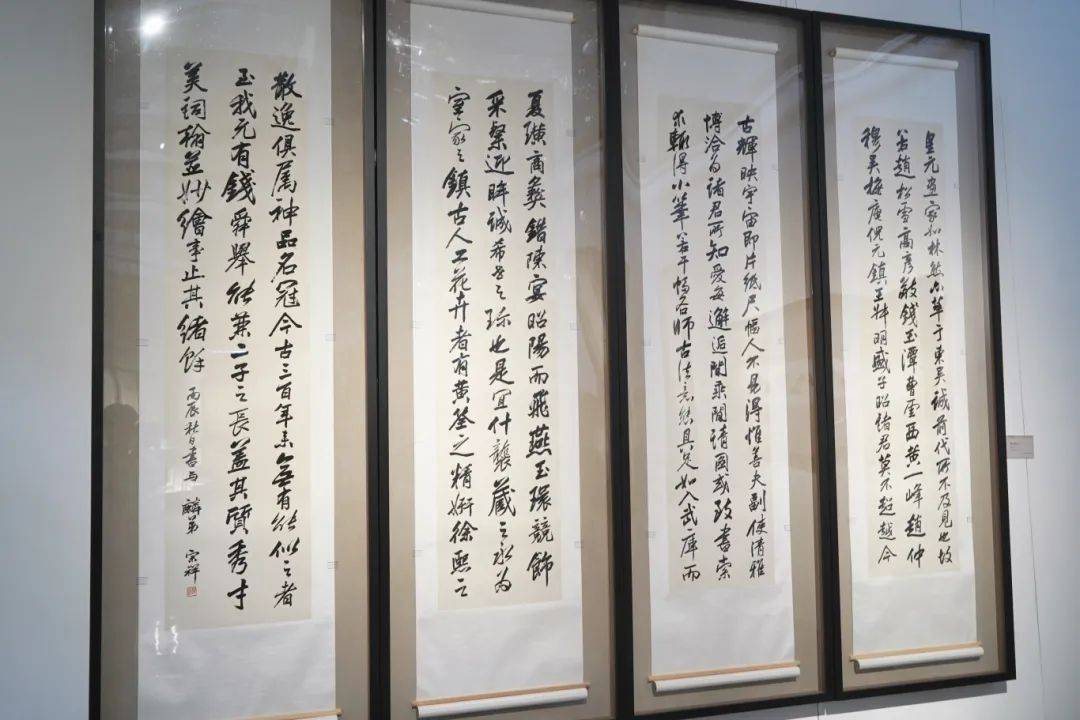 皇元画家如林然出萃于東吴誠前代所不及見也故
若趙松雪高彦敬錢玉潭曹雲西黄一峰趙仲
穆吴梅庵倪元鎮王叔明盛子昭諸君莫不超越今
古輝映宇宙即片紙尺幅人不易得惟善夫副使清雅
博洽为諸君所知愛每邂逅閒乘閒請圖或致書索
求輒得小筆若干幅各師古法意態具足如入武庫而
夏璜商彝錯陳宴昭陽而飛燕玉環競飾
采粲近眸誠希世之珎也是宜什襲藏之永为
室家之鎮古人工花卉者有黄荃之精妍徐熙之
散逸俱属神品名冠今古三百年来無有能似之者
至我元有錢舜舉能兼二子之長蓋其質秀才
美詞翰並妙繪事止其緒餘
丙辰秋日書与 麟弟 宗祥